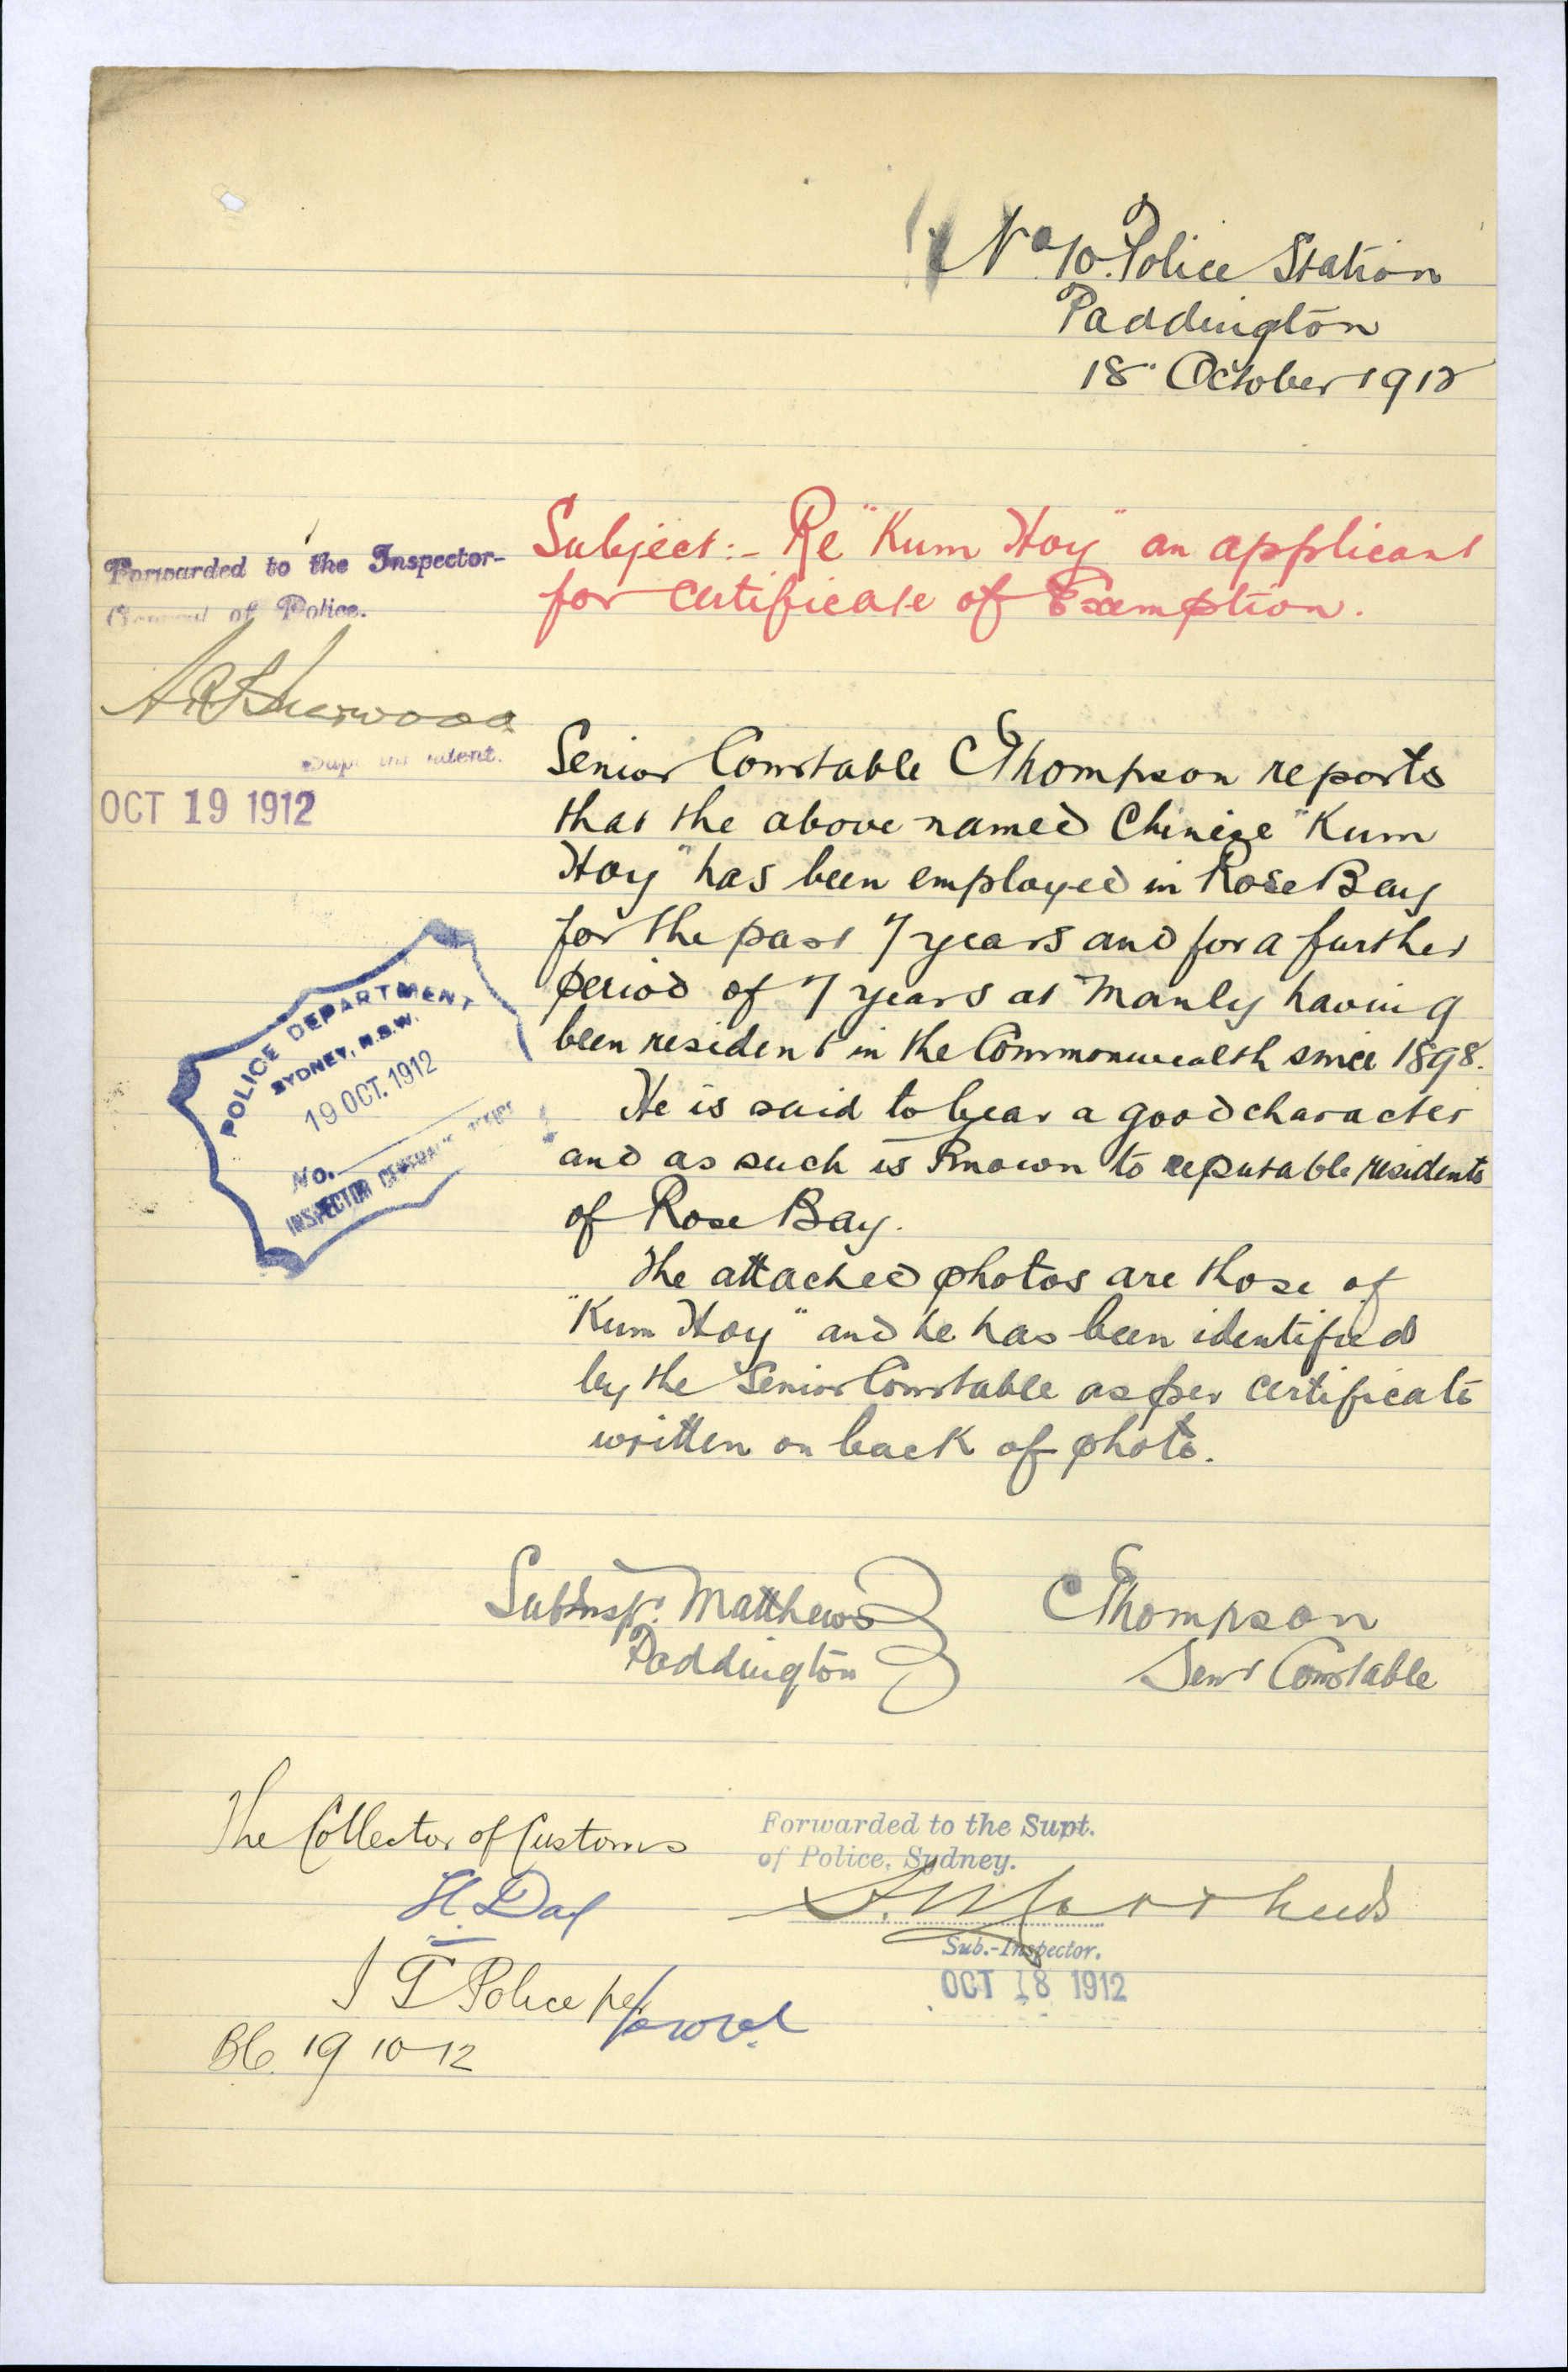 No 10. Police Station
Paddington
18" October 1912
Subject:- Re "Kum Hoy" an applicant
for Certificate of Exemption.
Forwarded to the Inspector-
General of Police.
Sherwood
Superintendent.
OCT 19 1912
Senior Constable C Thompson reports
that the above named Chinese "Kum
Hoy" has been employed in Rose Bay
for the past 7 years and for a further
period of 7 years at Manly having
been resident in the Commonwealth since 1898.
He is said to bear a good character
and as such is known to reputable residents
of Rose Bay.
The attached photos are those of
"Kum Hoy" and he has been identified
by the Senior Constable as per certificate
written on back of photo.
POLICE DEPARTMENT
SYDNEY, N.S.W.
19 OCT. 1912
No.
INSPECTOR GENERAL'S
Sub Inspr. Matthews
Paddington
C Thompson
Senr Constable
The Collector of Customs
H. Day
I G Police per
19 10 12
Forwarded to the Supt.
of Police, Sydney.
Sub.-Inspector.
OCT 18 1912